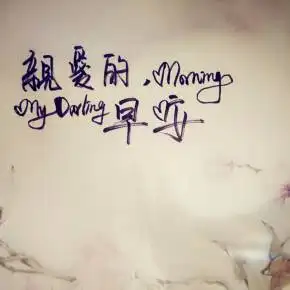 親愛的，♡Morning
♡My Darling 早安